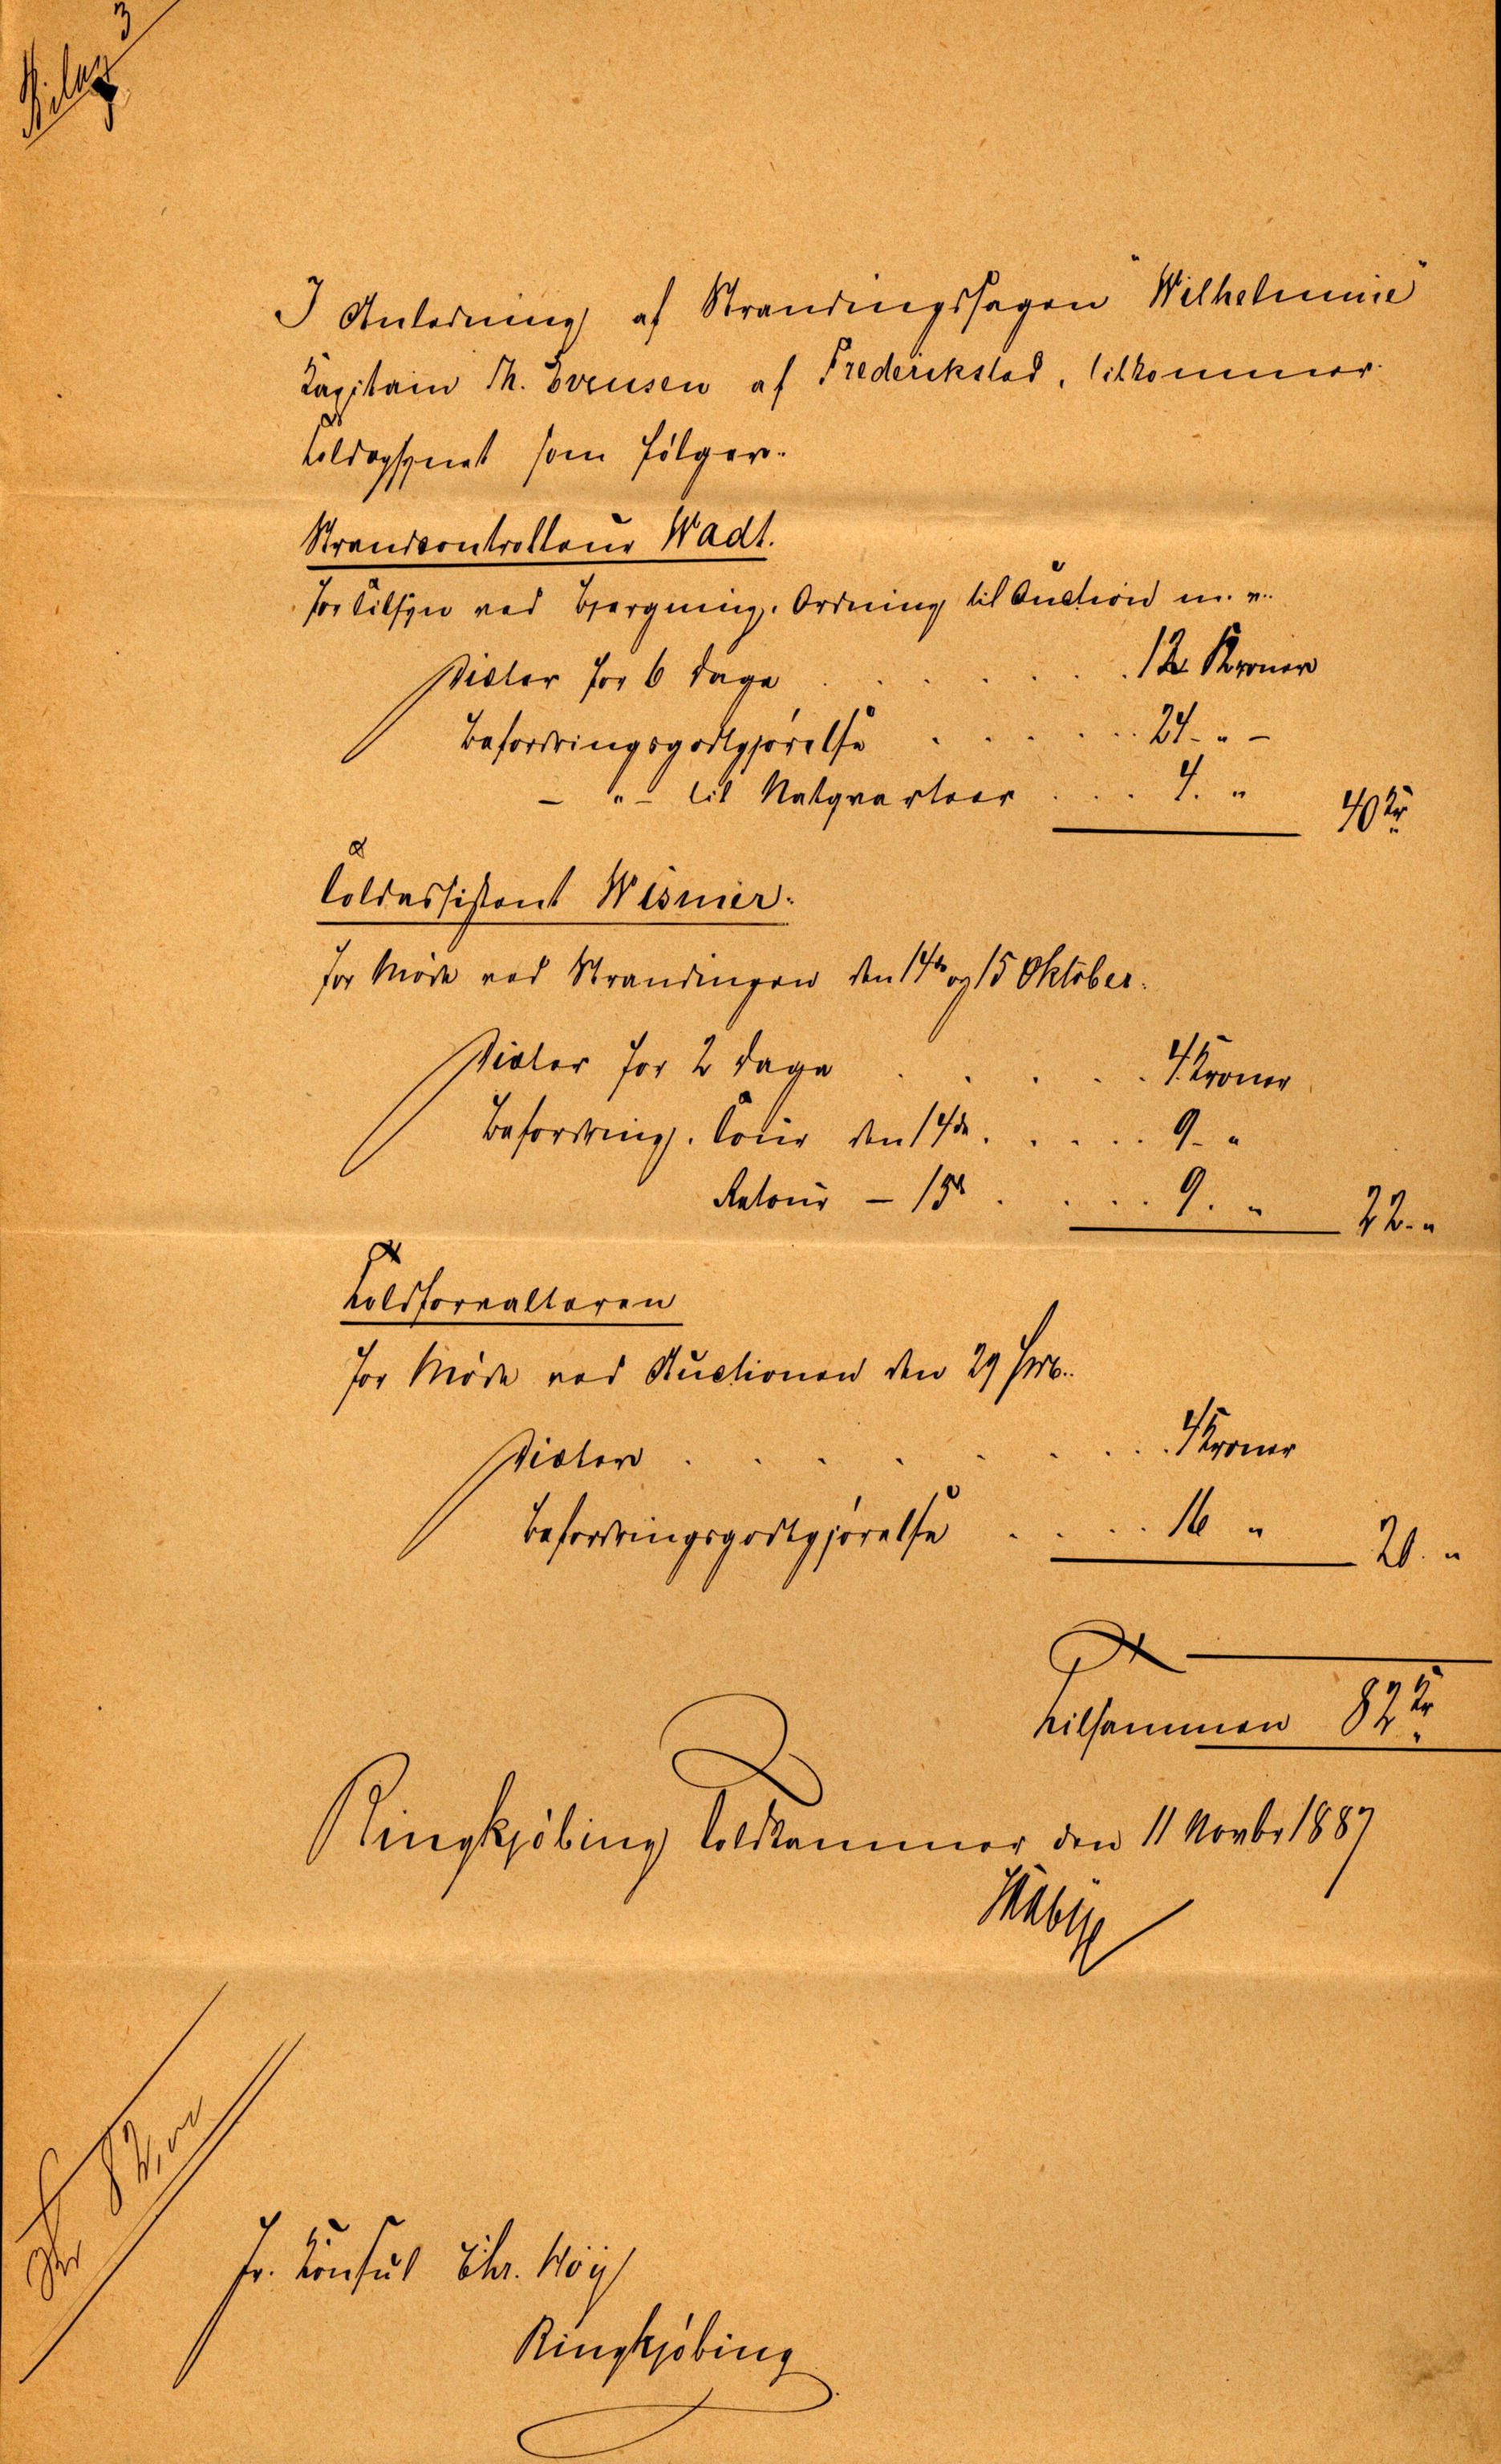 Bilag 3
I Anledning af Strandingssagen "Wilhelmine"
Kapitain Th. Evensen af Frederikstad, tilkommer
Toldopsynet som følger.
Strandcontrolleur Wadt.
for Tilsyn ved Bjergning, Ordning til Auction m. v.
Diæter for 6 Dage . . . . . . 12 Kroner
Befordringsgodtgjørelse . . . . . . 24. " -
- " - til Natqvarteer . . . 4. " 40 Kr
Toldassistent Wismer.
for Møde ved Strandingen den 14de og 15 Oktober.
Diæter for 2 Dage . . . . . 4. Kroner
Befordring. Tour den 14de . . . . . 9. "
Retour - 15de . . . . 9. " 22. "
Toldforvalteren
for Møde ved Auctionen den 29 
Diæter . . . . . . . . 4 Kroner
Befordringsgodtgjørelse . . . . 16 " 20. "
Tilsammen 82 Kr
Ringkjøbing Toldkammer den 11 Novbr 1887
Hr. Konsul Chr. Høy
Ringkjøbing